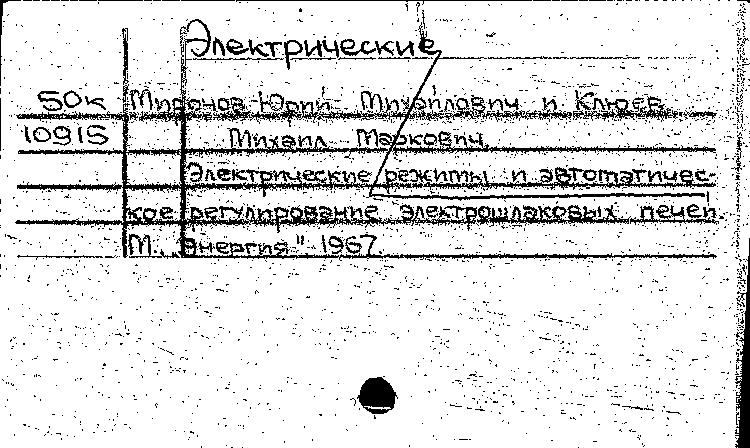 Электрические
50к Миронов Юрий Михайлович и Клюев
10915 Михаил Маркович.
Электрические режимы и автоматичес-
кое регулирование электрошлаковых печей.
М., „Энергия" 1967.